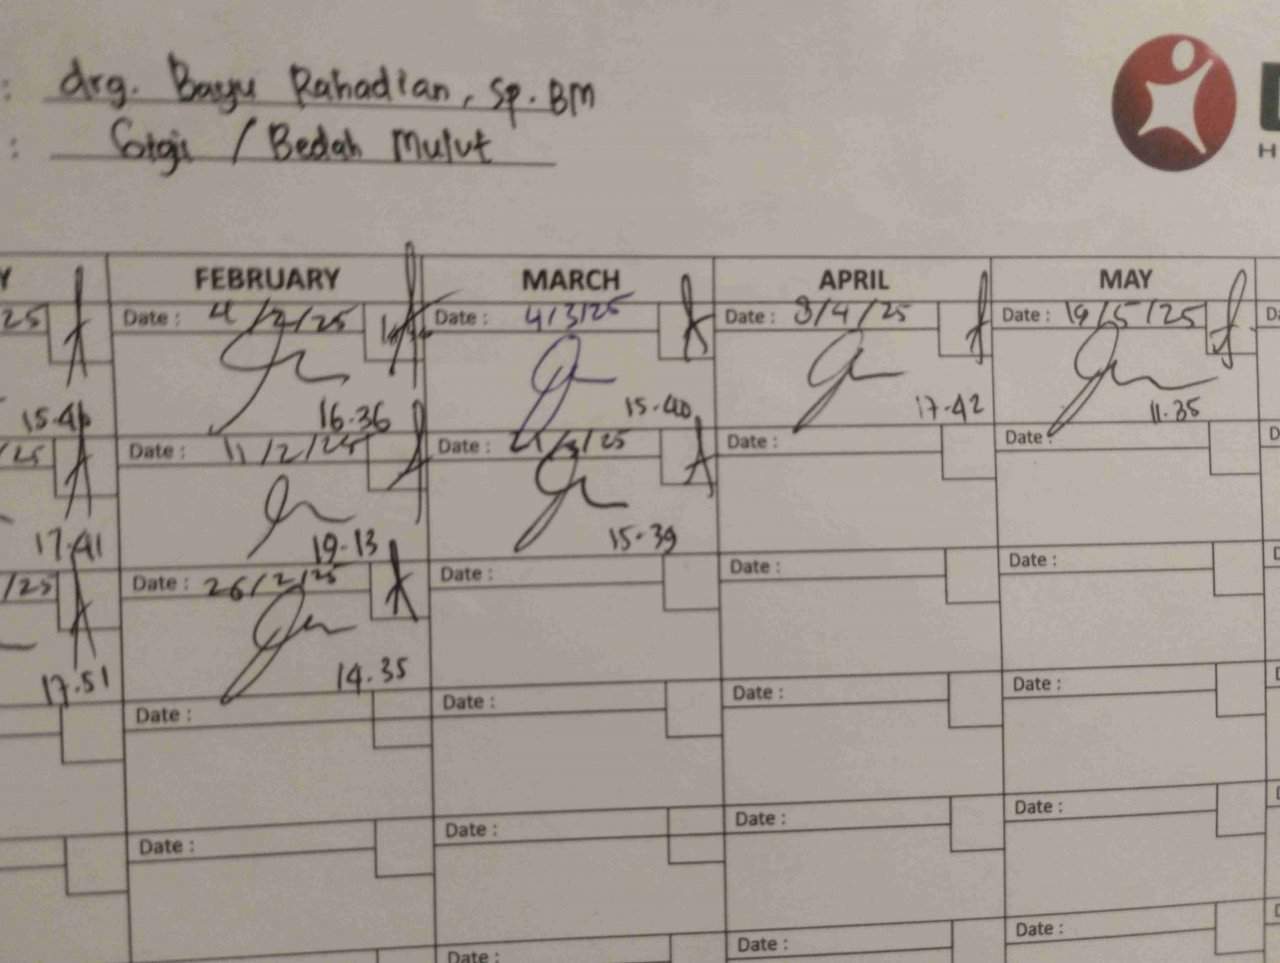 : drg. Bayu Rahadian, Sp. BM
: Gigi / Bedah Mulut
H
Y FEBRUARY MARCH APRIL MAY
25 Date : 4/2/25 Date : 4/3/25 Date : 8/4/25 Date : 19/5/25 Da
15.46 16.36 15.40 17.42 11.35
/25 Date : 11/2/25 Date : 21/3/25 Date : Date : D
17.41 19.13 15.39
/25 Date : 26/2/25 Date : Date : Date :
17.51 14.35
Date : Date : Date : Date :
Date : Date : Date : Date :
Date : Date : Date :